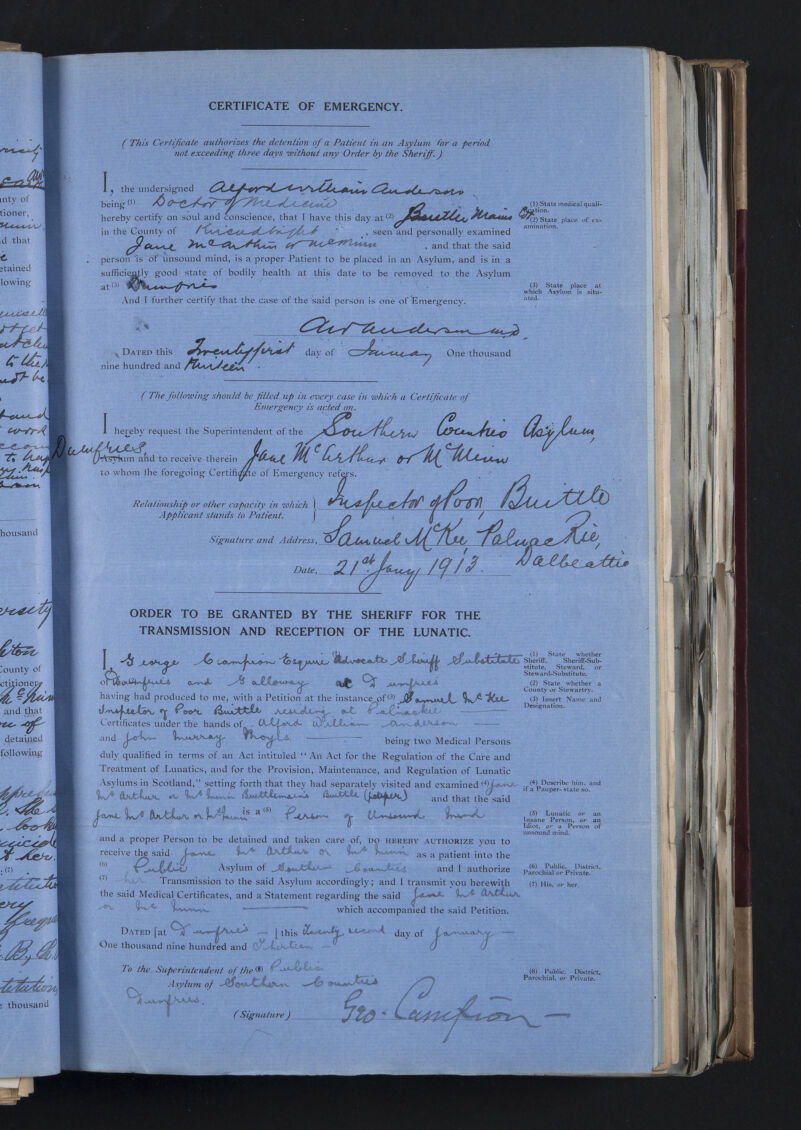 CERTIFICATE OF EMERGENCY.
(This Certificate authorizes the detention of a Patient in an Asylum for a period
not exceeding three days without any Order by the Sheriff.)
I, the undersigned Alford William Anderson
being (1) Doctor of Medicine
hereby certify on soul and conscience, that I have this day at (2) Buittle Mains
in the County of Kircudbright, seen and personally examined
Jane McArthur or McMinn, and that the said
person is of unsound mind, is a proper Patient to be placed in an Asylum, and is in a
sufficiently good state of bodily health at this date to be removed to the Asylum
at (3) Dumfries
And I further certify that the case of the said person is one of Emergency.
(1) State medical quali-
fication.
(2) State place of ex-
amination.
(3) State place at
which Asylum is situ-
ated.
AW Anderson M.D.
DATED this Twenty first day of January One thousand
nine hundred and thirteen.
(The following should be filled up in every case in which a Certificate of
Emergency is acted on.
I hereby request the Superintendent of the Southern Counties Asylum,
Dumfries
Asylum and to receive therein Jane McArthur or McMinn
to whom the foregoing Certificate of Emergency refers.
Relationship or other capacity in which
Applicant stands to Patient. } Inspector of Poor, Buittle
Signature and Address, Samuel McKee, Palnackie,
Dalbeattie
Date, 21st Jany 1913.
ORDER TO BE GRANTED BY THE SHERIFF FOR THE
TRANSMISSION AND RECEPTION OF THE LUNATIC.
I, George Campion Esquire Advocate Sheriff Substitute
of Dumfries and Galloway at Dumfries
having had produced to me, with a Petition at the instance of (3) Samuel McKee
Inspector of Poor Buittle residing at Palnackie
Certificates under the hands of Alford William Anderson
and John Murray being two Medical Persons
duly qualified in terms of an Act intituled "An Act for the Regulation of the Care and
Treatment of Lunatics, and for the Provision, Maintenance, and Regulation of Lunatic
Asylums in Scotland," setting forth that they had separately visited and examined (4) Jane
McArthur or McMinn Buittlemains Buittle (pauper) and that the said
Jane McArthur or McMinn is a (5) Person of Unsound Mind
and a proper Person to be Detained and taken care of, DO HEREBY AUTHORIZE you to
receive the said Jane McArthur or McMinn as a patient into the
(6) Public Asylum of Southern Counties and I authorize
(7) her Transmission to the said Asylum accordingly; and I transmit you herewith
the said Medical Certificates, and a Statement regarding the said Jane McArthur
or McMinn which accompanied the said Petition.
DATED [at Dumfries] this Twenty second day of January
One thousand nine hundred and Thirteen
To the Superintendent of the (8) Public
Asylum of Southern Counties
Dumfries.
(Signature) Geo. Campion
(1) State whether
Sheriff, Sheriff-Sub-
stitute, Steward, or
Steward-Substitute.
(2) State whether a
County or Stewartry.
(3) Insert Name and
Designation.
(4) Describe him, and
if a Pauper, state so.
(5) Lunatic or an
Insane Person, or an
Idiot, or a Person of
unsound mind.
(6) Public, District,
Parochial or Private.
(7) His, or her.
(8) Public, District,
Parochial, or Private.